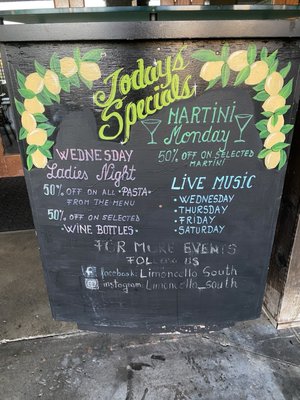 Today's
Specials
MARTINI
Monday
50% OFF ON SELECTED
MARTINI
WEDNESDAY
Ladies Night
50% OFF ON ALL •PASTA•
FROM THE MENU
50% OFF ON SELECTED
•WINE BOTTLES•
LiVE MUSIC
•WEDNESDAY
•THURSDAY
•FRIDAY
•SATURDAY
FOR MORE EVENTS
FOLLOW US
facebook: Limoncello South
instagram: Limoncello_south